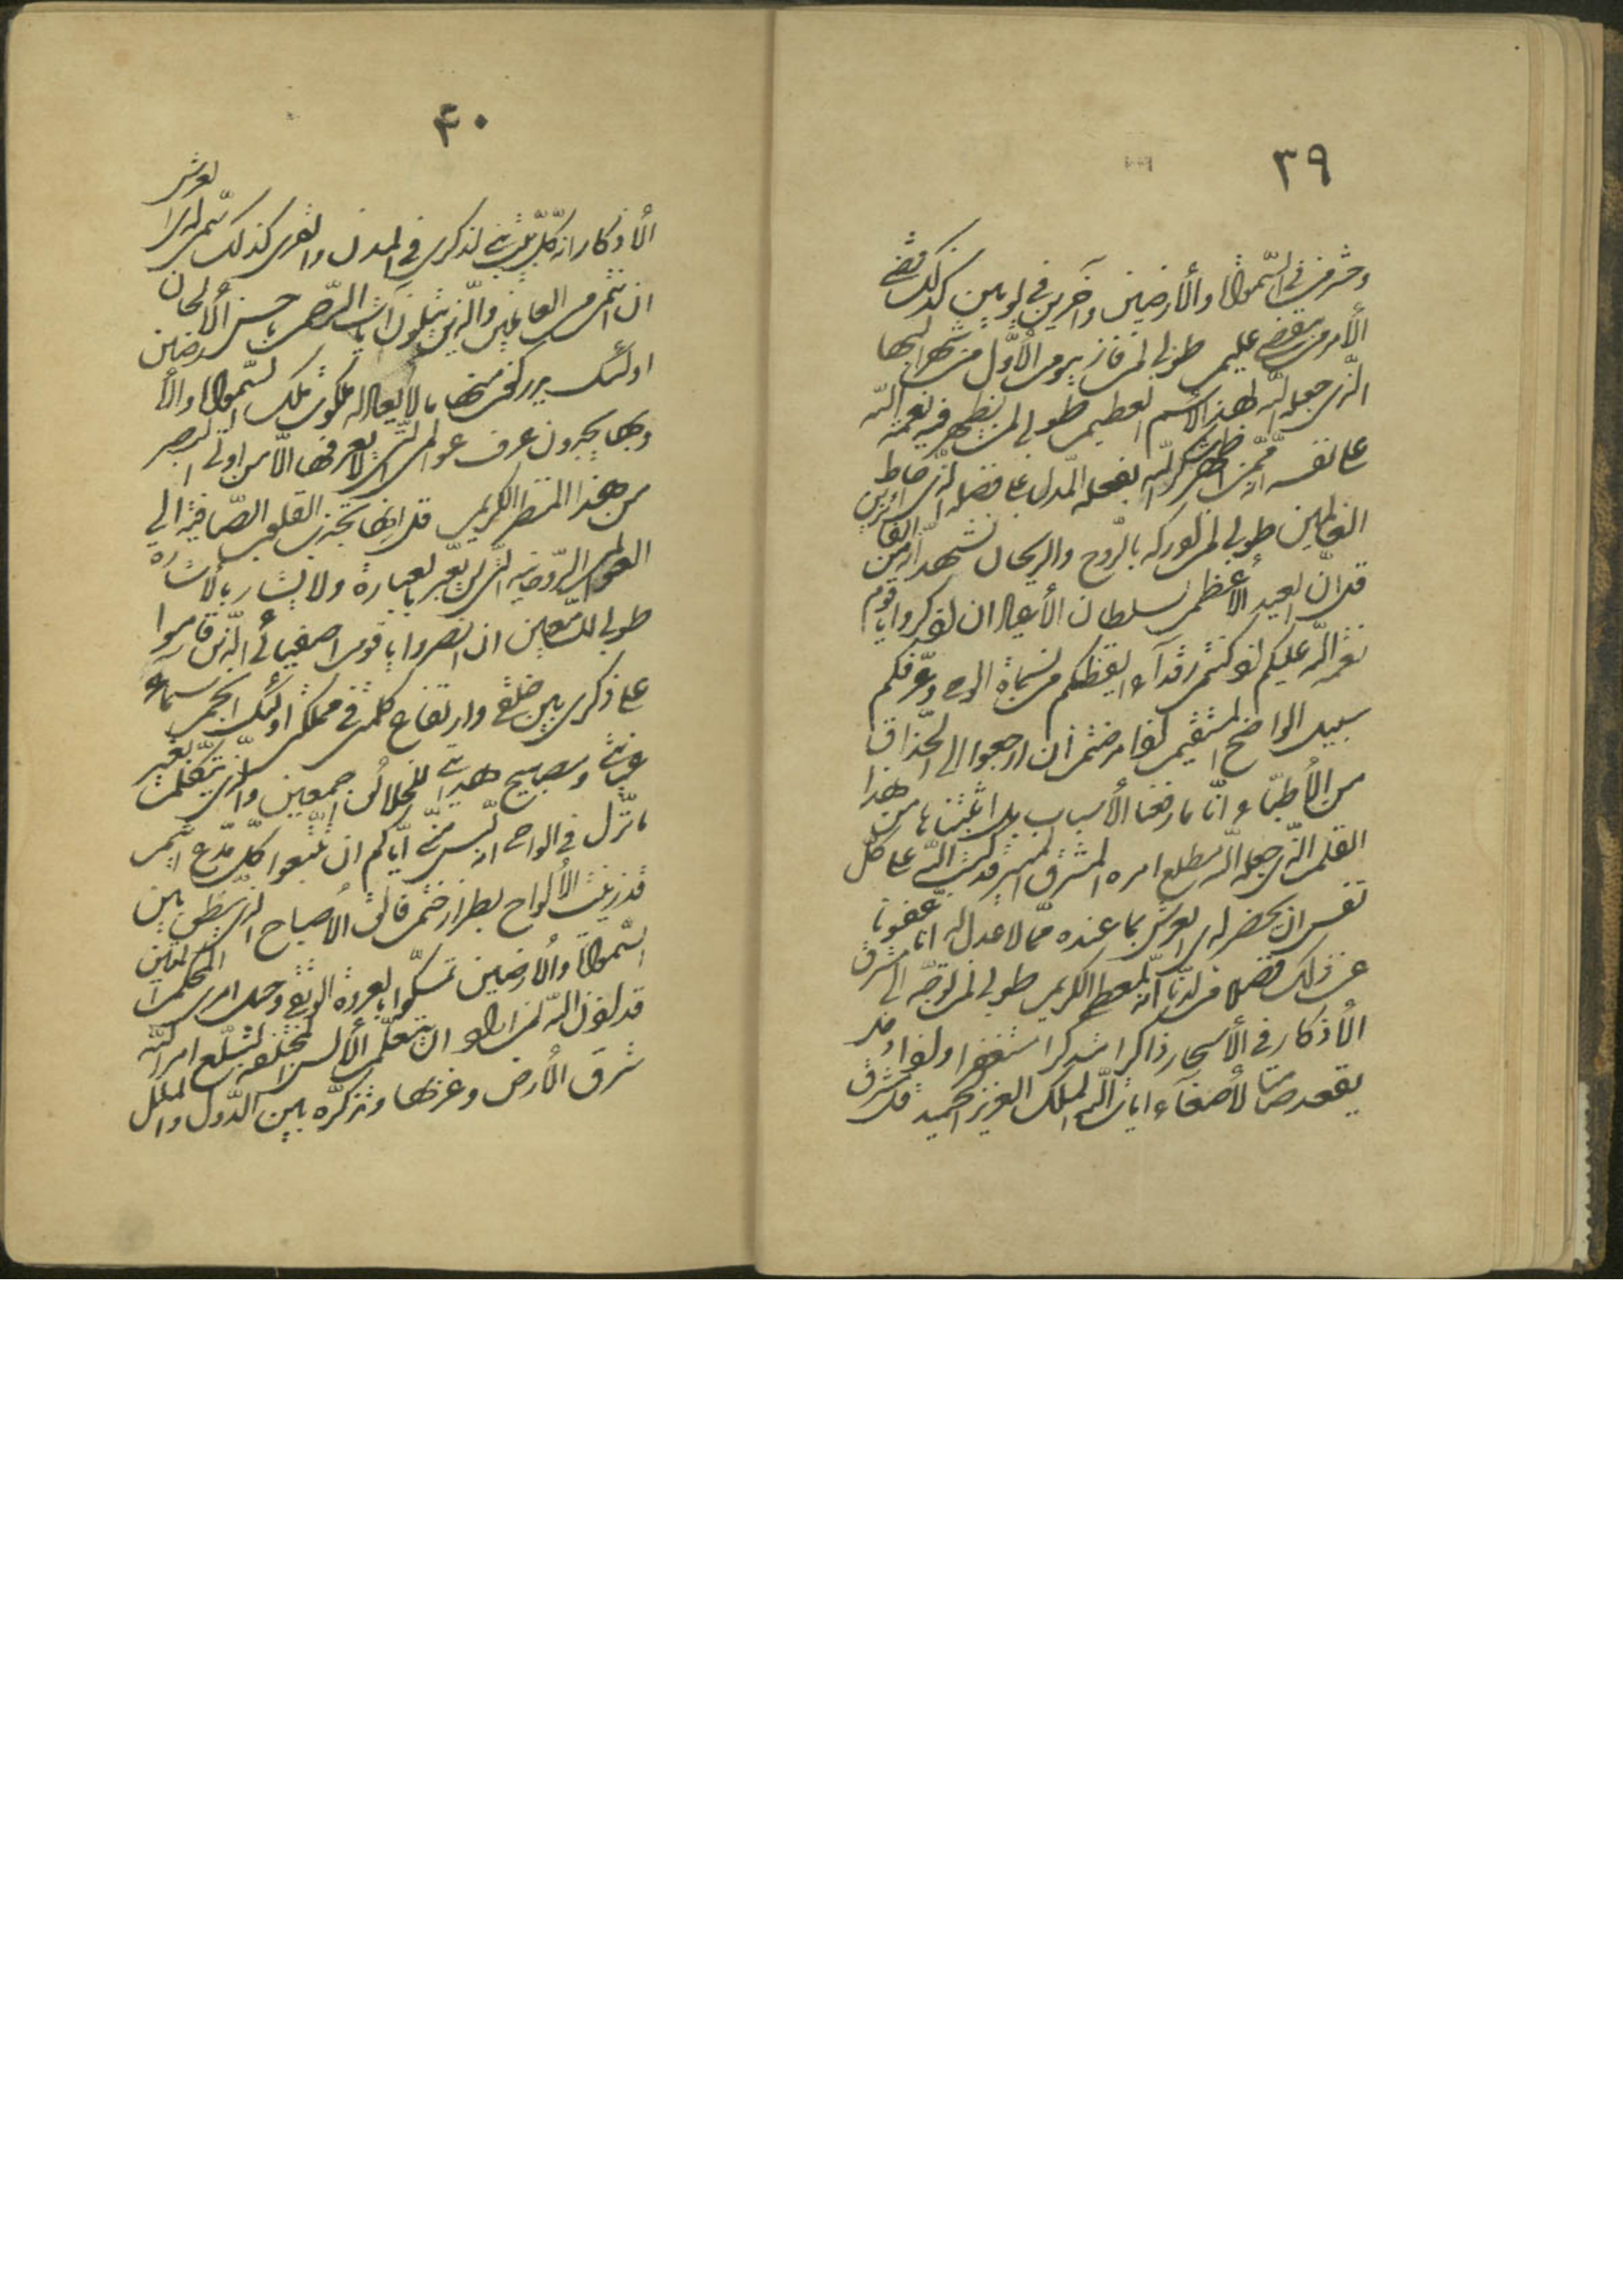 ٣٩
ومن في السّموات والأرضين وآخرين في يومين كذلك قضي
الأمر من عليم طوبى لمن فاز بيوم الأوّل من شهر البهاء
الّذي جعله اللّه لهذا الأسم العظيم طوبى لمن يظهر فيه نعمة اللّه
على نفسه انّه ممّن اظهر شكر اللّه بفعله المدل على فضله الّذي احاط
العالمين طوبى لمن ادركه بالرّوح والريحان نشهد انّه من الفائزين
قل انّ العيد الأعظم لسلطان الأعياد ان اذكروا يا قوم
نعمة اللّه عليكم اذ كنتم رقدآء ايقظكم من نسمات الوحي وعرّفكم
سبيله الواضح المستقيم اذا مرضتم ان ارجعوا الى الحذّاق
من الأطبّاء انّا ما رفعنا الأسباب بل اثبتناها من هذا
القلم الّذي جعله اللّه مطلع امره المشرق المنير قد كتب اللّه على كلّ
نفس ان يحضر لدى العرش بما عنده ممّا لا عدل له انا عفونا
عن ذلك فضلا من لدنّا انّه المعطي الكريم طوبى لمن توجّه الى مشرق
الأذكار في الأسحار ذاكرا متذكرا مستغفرا واذا دخل
يقعد صامتا لأصغاء ايات اللّه الملك العزيز الحميد قل مشرق
۴۰
الأذكار انه كلّ بيت بني لذكري في المدن والقرى كذلك سمّي لدى العرش
ان انتم من العارفين والّذين يتلون آيات الرّحمن باحسن الألحان
اولئك يدركون منها ما لا يعادله ملكوت ملك السّموات والأرضين
وبها يجدون عرف عوالمي الّتي لا يعرفها الّا من اوتي البصر
من هذا المنظر الكريم قل انها تجذب القلوب الصّافية الى
العوالم الرّوحانيه الّتي لن تعبّر بالعبارة ولا تشار بالأشاره
طوبى للسّامعين ان انصروا يا قوم اصفيائي الّذين قاموا
على ذكري بين خلقي وارتفاع كلمتي في مملكتي اولئك انجم سماء
عنايتي ومصابيح هدايتي للخلائق اجمعين والّذي يتكلّم بغير
ما نزّل في الواحي انه ليس منّي ايّاكم ان تتّبعوا كلّ مدّع اثيم
قد زيّنت الألواح بطراز ختم فالق الأصباح الّذي ينطق بين
السّموات والأرضين تمسّكوا بالعروة الوثقى وحبل امري المحكم المتين
قد اذن اللّه لمن اراد ان يتعلّم الألسن المختلفه ليبلّغ امر اللّه
شرق الأرض وغربها ويذكره بين الدّول والملل